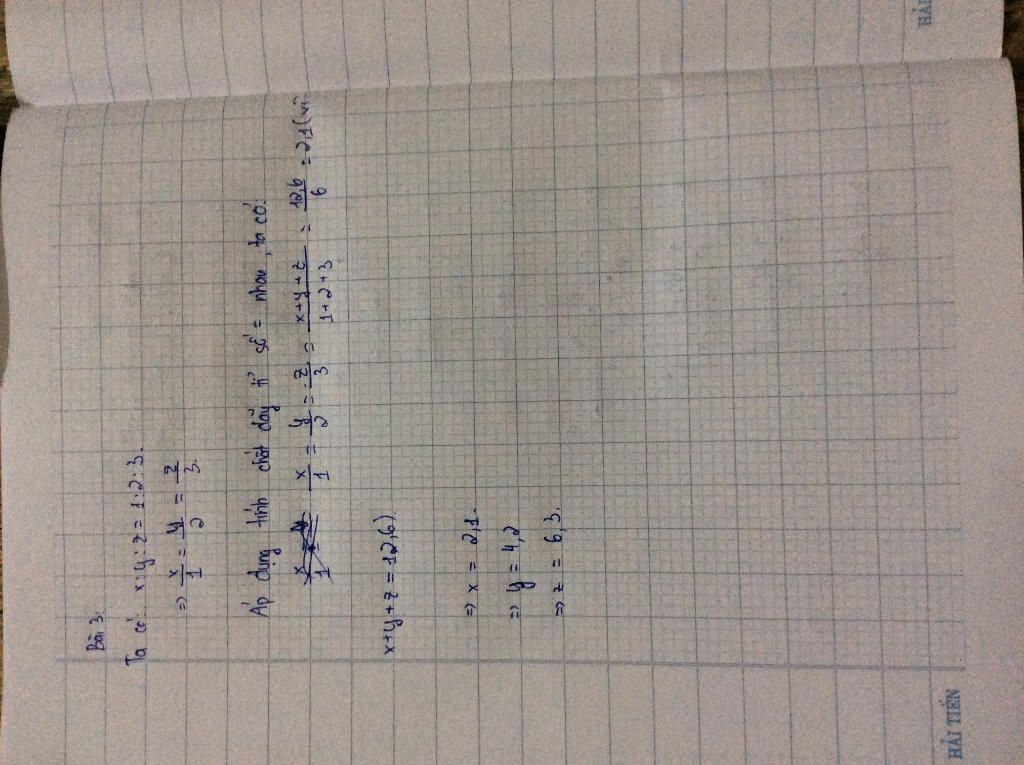 Bài 3.
Ta có: x:y:z = 1:2:3.
=> x/1 = y/2 = z/3.
Áp dụng tính chất dãy tỉ số = nhau, ta có:
x/1 = y/2 = z/3 = x+y+z/1+2+3 = 12,6/6 = 2,1 (vì
x+y+z = 12,6)
=> x = 2,1.
=> y = 4,2
=> z = 6,3.
HẢI TIẾN
HẢI